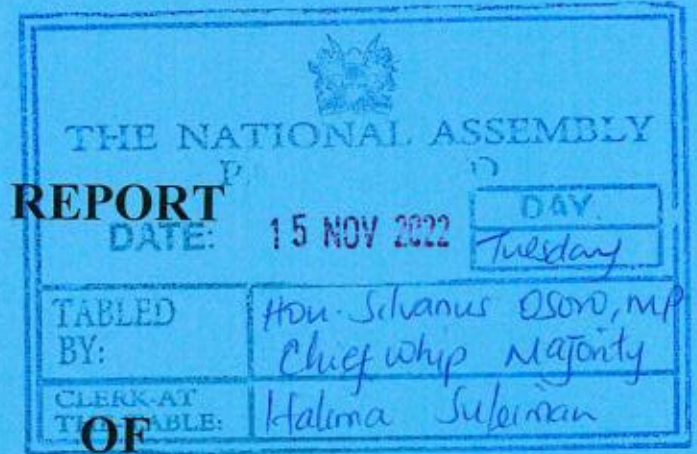 THE NATIONAL ASSEMBLY
REPORT
DATE: 15 NOV 2022 DAY.
Tuesday
TABLED BY: Hon. Silvanus Osoro, MP
Chief Whip Majority
CLERK-AT THE TABLE: Halima Suleiman
OF